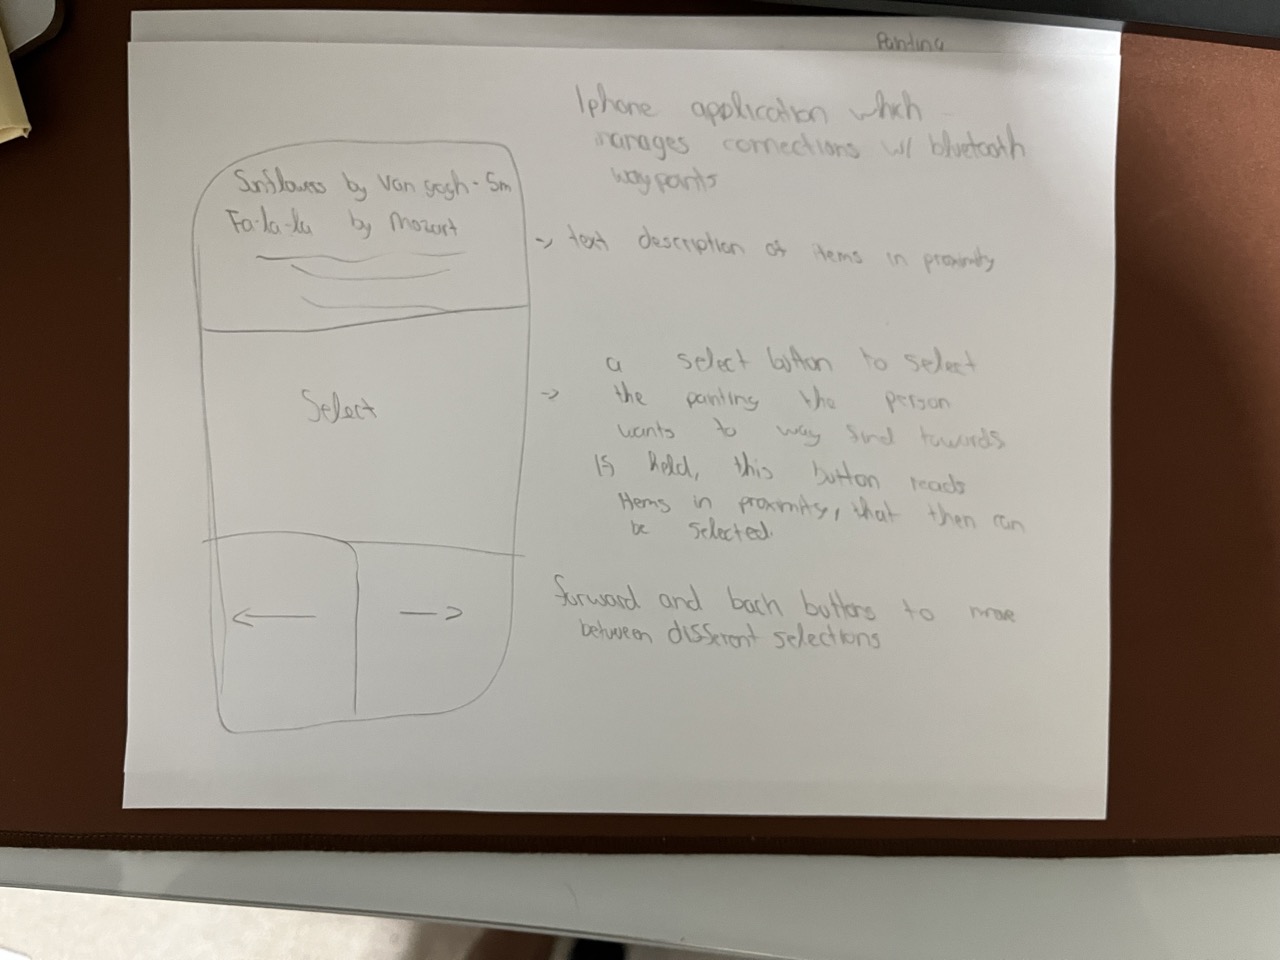 Painting
Iphone application which
manages connections w/ bluetooth
way points
Sunflowers by Van gogh - 5m
Fa-la-la by Mozart
-> text description of items in proximity
Select
-> a select button to select
the painting the person
wants to way find towards
If held, this button reads
items in proximity, that then can
be selected.
forward and back buttons to move
between different selections